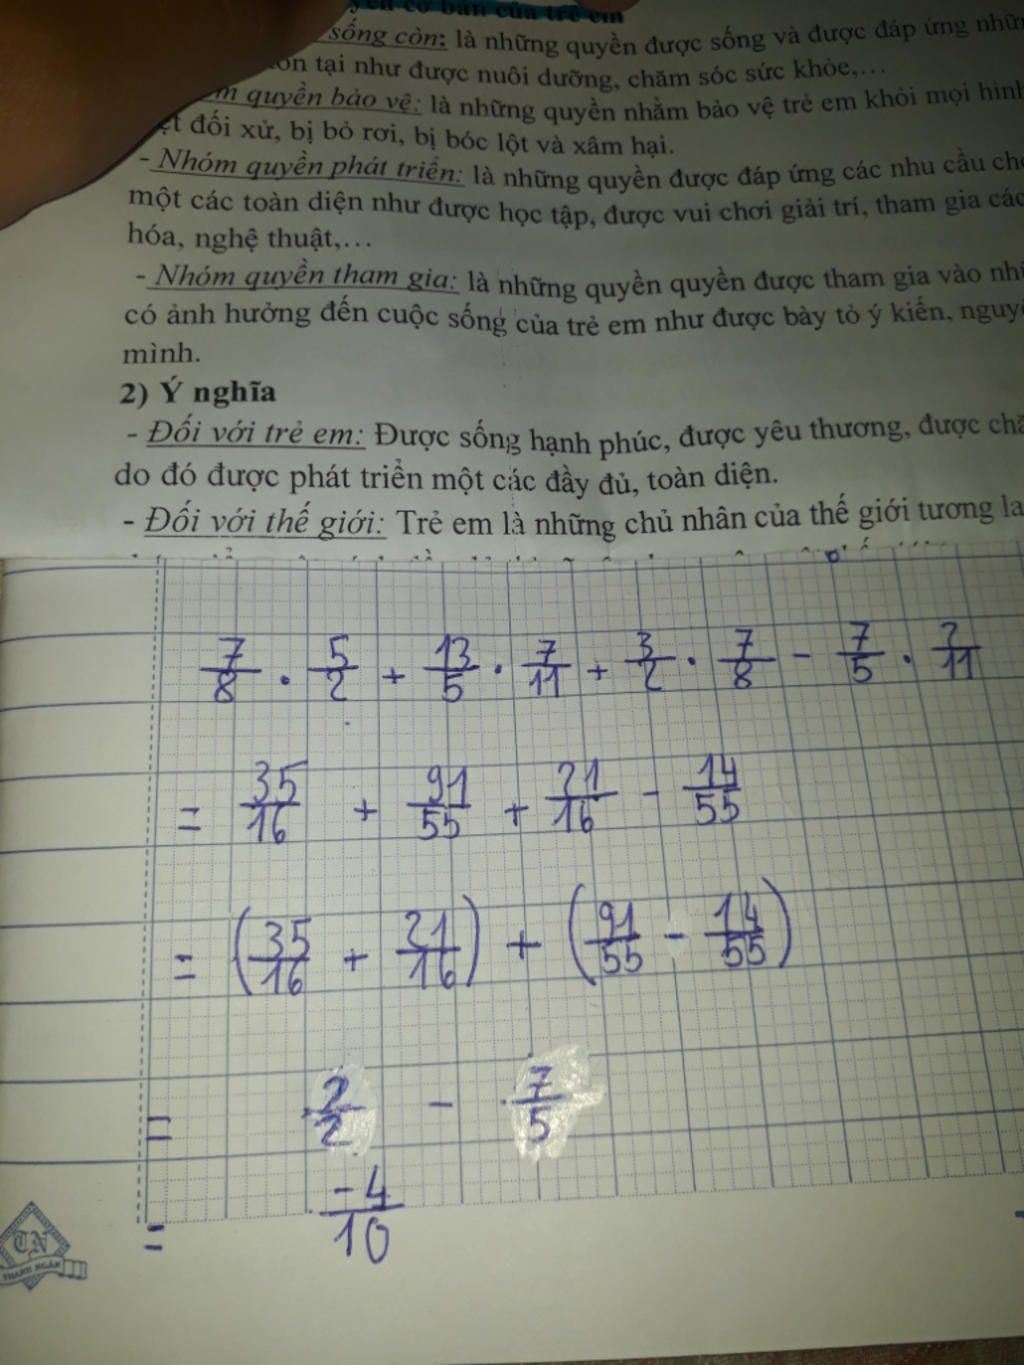 yền cơ bản của trẻ em
sống còn: là những quyền được sống và được đáp ứng nhữn
ồn tại như được nuôi dưỡng, chăm sóc sức khỏe,...
m quyền bảo vệ: là những quyền nhằm bảo vệ trẻ em khỏi mọi hình
ệt đối xử, bị bỏ rơi, bị bóc lột và xâm hại.
- Nhóm quyền phát triển: là những quyền được đáp ứng các nhu cầu cho
một các toàn diện như được học tập, được vui chơi giải trí, tham gia các
hóa, nghệ thuật,...
- Nhóm quyền tham gia: là những quyền quyền được tham gia vào nh
có ảnh hưởng đến cuộc sống của trẻ em như được bày tỏ ý kiến, nguy
mình.
2) Ý nghĩa
- Đối với trẻ em: Được sống hạnh phúc, được yêu thương, được chă
do đó được phát triển một các đầy đủ, toàn diện.
- Đối với thế giới: Trẻ em là những chủ nhân của thế giới tương la
7/8 . 5/2 + 13/5 . 7/11 + 3/2 . 7/8 - 7/5 . 2/11
= 35/16 + 91/55 + 21/16 - 14/55
= (35/16 + 21/16) + (91/55 - 14/55)
= 2/2 - 7/5
= -4/10
TN
THANH NGÂN